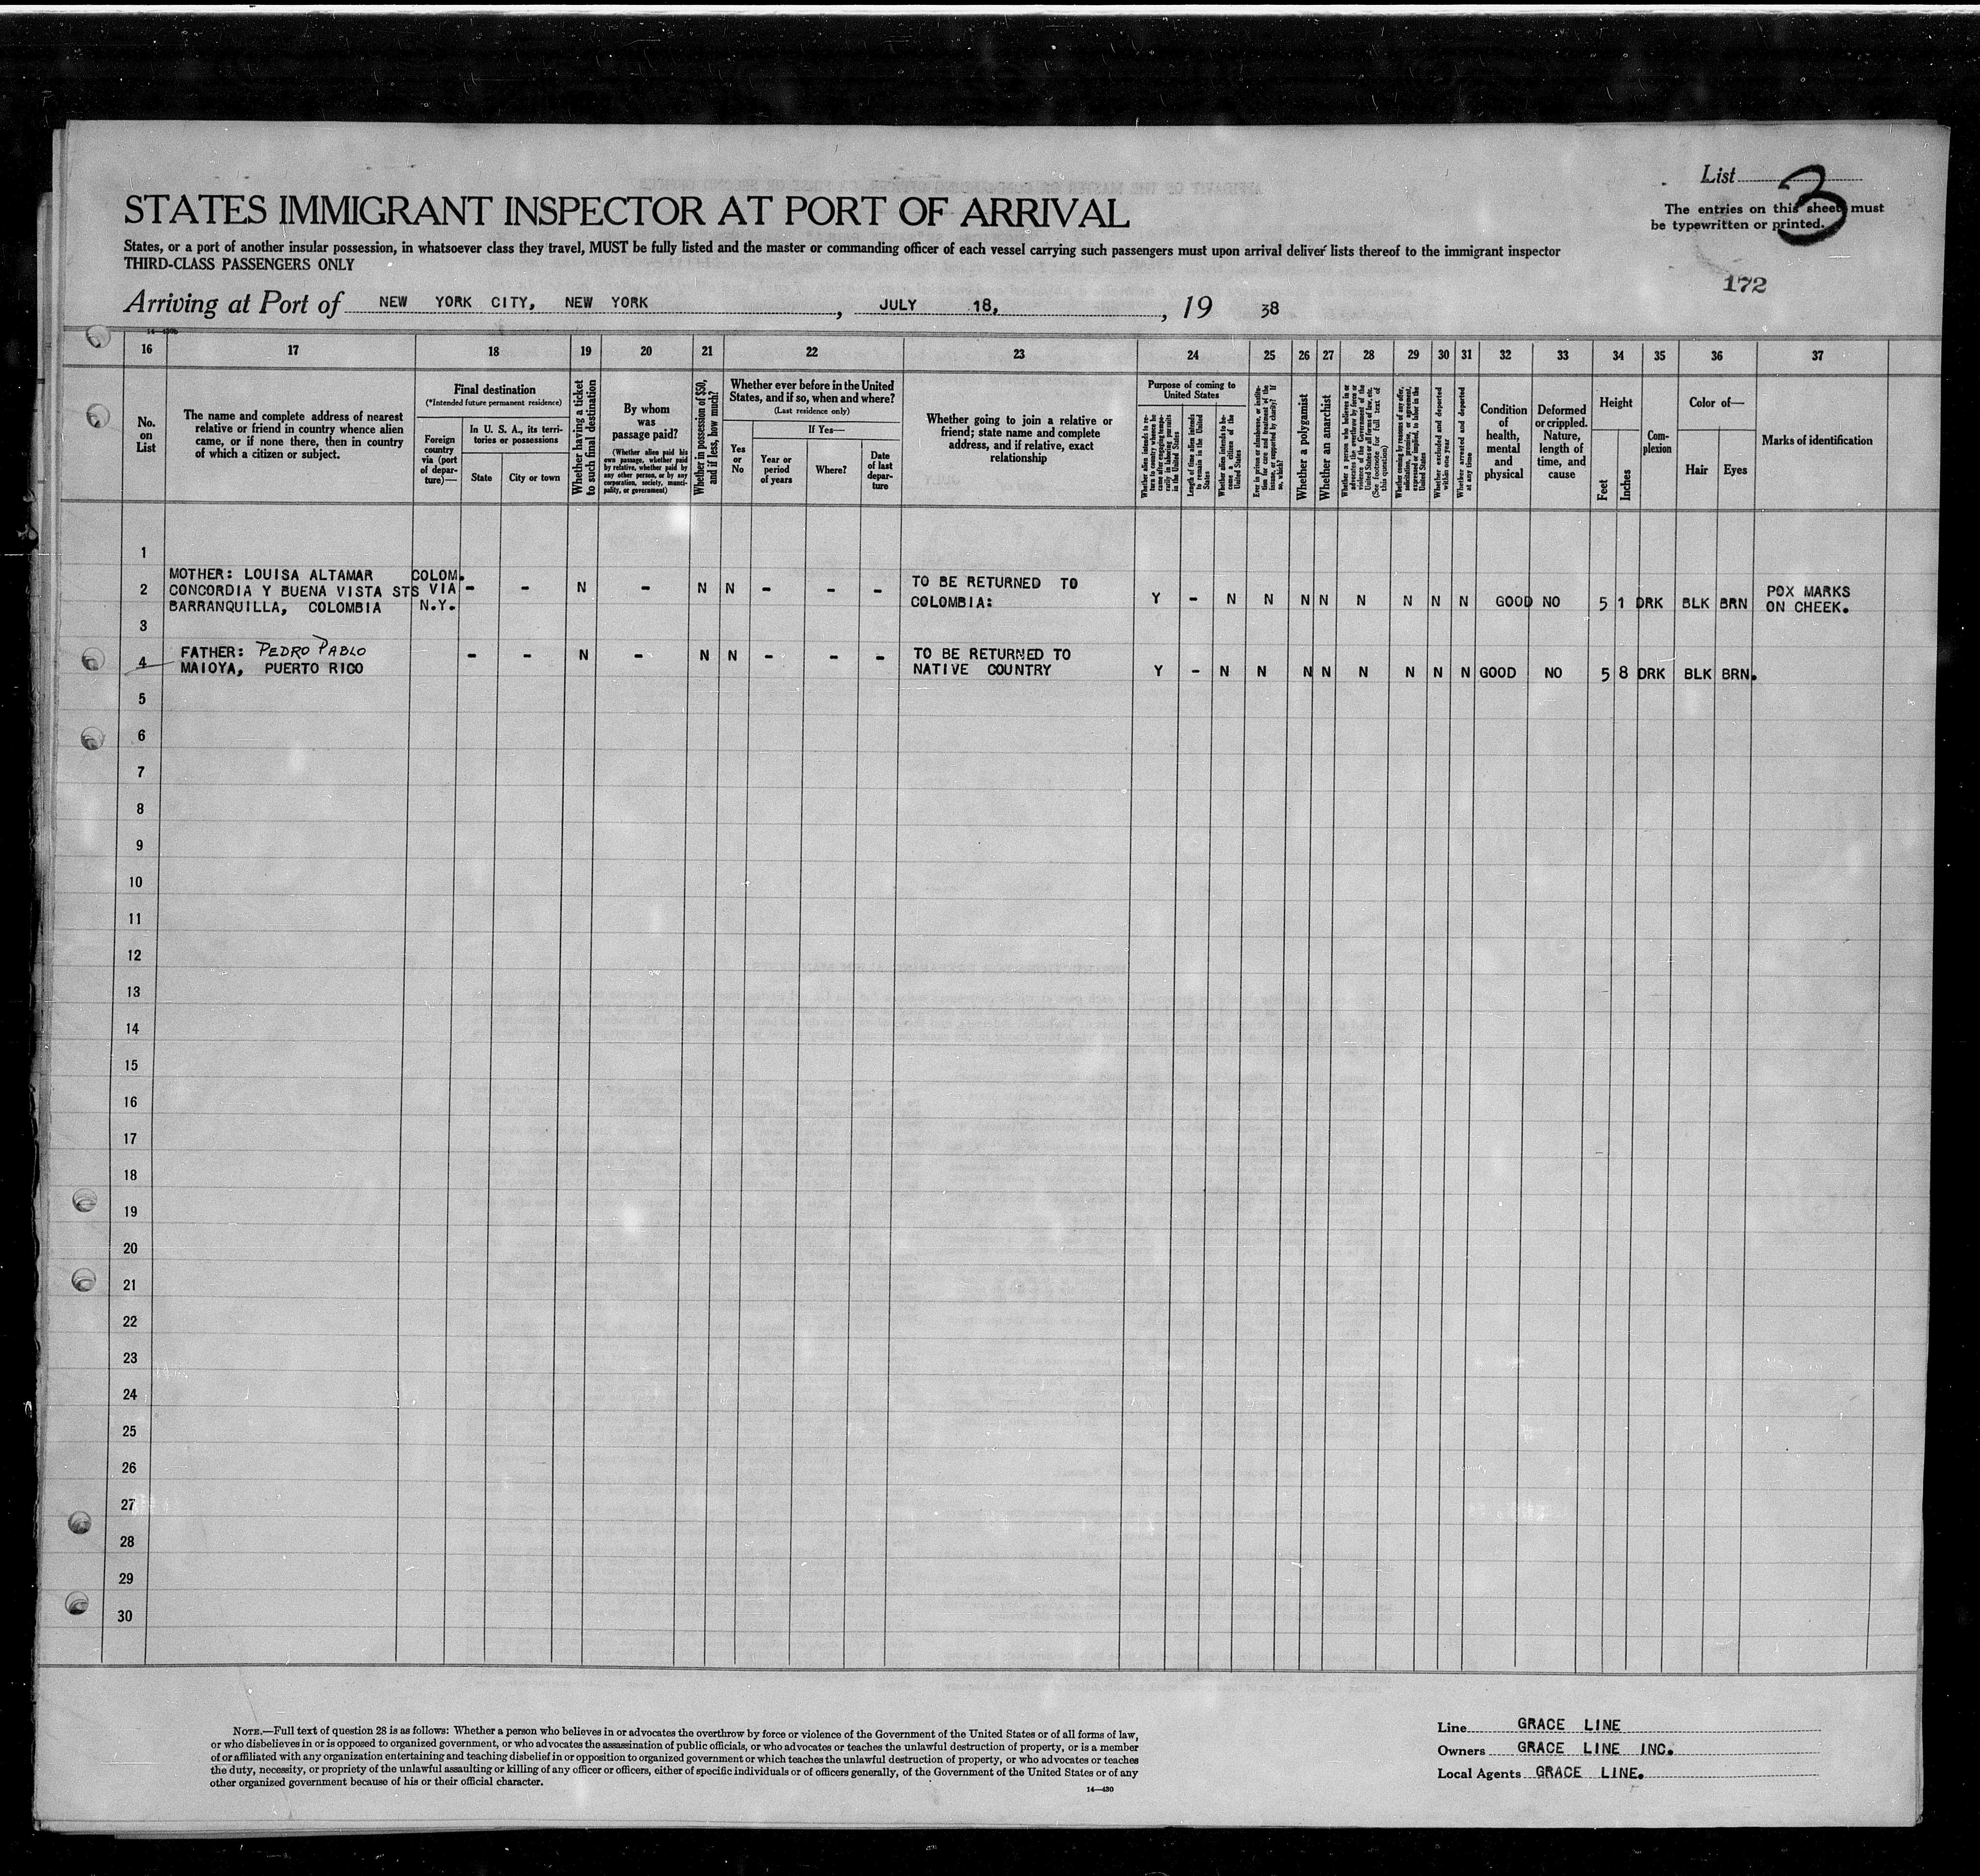 List 3
STATES IMMIGRANT INSPECTOR AT PORT OF ARRIVAL
The entries on this sheet must
be typewritten or printed.
States, or a port of another insular possession, in whatsoever class they travel, MUST be fully listed and the master or commanding officer of each vessel carrying such passengers must upon arrival deliver lists thereof to the immigrant inspector
THIRD-CLASS PASSENGERS ONLY
172
Arriving at Port of NEW YORK CITY, NEW YORK, JULY 18, 19 38
16 17 18 19 20 21 22 23 24 25 26 27 28 29 30 31 32 33 34 35 36 37
No. on List
The name and complete address of nearest
relative or friend in country whence alien
came, or if none there, then in country
of which a citizen or subject.
Final destination
(*Intended future permanent residence)
Foreign country via (port of departure)—
In U. S. A., its territories or possessions
State
City or town
Whether having a ticket to such final destination
By whom was passage paid?
(Whether alien paid his own passage, whether paid by relative, whether paid by any other person, or by any corporation, society, municipality, or government)
Whether in possession of $50, and if less, how much?
Whether ever before in the United States, and if so, when and where?
(Last residence only)
Yes or No
If Yes—
Year or period of years
Where?
Date of last departure
Whether going to join a relative or
friend; state name and complete
address, and if relative, exact
relationship
Purpose of coming to United States
Whether alien intends to return to country whence he came after engaging temporarily in laboring pursuits in the United States
Length of time alien intends to remain in the United States
Whether alien intends to become a citizen of the United States
Ever in prison or almshouse, or institution for care and treatment of the insane, or supported by charity? If so, which?
Whether a polygamist
Whether an anarchist
Whether a person who believes in or advocates the overthrow by force or violence of the Government of the United States or all forms of law, etc. (See footnote for full text of this question)
Whether coming by reasons of any offer, solicitation, promise, or agreement, expressed or implied, to labor in the United States
Whether excluded and deported within one year
Whether arrested and deported at any time
Condition of health, mental and physical
Deformed or crippled. Nature, length of time, and cause
Height
Feet
Inches
Complexion
Color of—
Hair
Eyes
Marks of identification
1
MOTHER: LOUISA ALTAMAR COLOM.
2 CONCORDIA Y BUENA VISTA STS VIA - - N - N N - - - TO BE RETURNED TO POX MARKS
BARRANQUILLA, COLOMBIA N.Y. COLOMBIA: Y - N N N N N N N N GOOD NO 5 1 DRK BLK BRN ON CHEEK.
3
FATHER: PEDRO PABLO - - N - N N - - - TO BE RETURNED TO
4 MAIOYA, PUERTO RICO NATIVE COUNTRY Y - N N N N N N N N GOOD NO 5 8 DRK BLK BRN.
5
6
7
8
9
10
11
12
13
14
15
16
17
18
19
20
21
22
23
24
25
26
27
28
29
30
NOTE.—Full text of question 28 is as follows: Whether a person who believes in or advocates the overthrow by force or violence of the Government of the United States or of all forms of law,
or who disbelieves in or is opposed to organized government, or who advocates the assassination of public officials, or who advocates or teaches the unlawful destruction of property, or is a member
of or affiliated with any organization entertaining and teaching disbelief in or opposition to organized government or which teaches the unlawful destruction of property, or who advocates or teaches
the duty, necessity, or propriety of the unlawful assaulting or killing of any officer or officers, either of specific individuals or of officers generally, of the Government of the United States or of any
other organized government because of his or their official character.
14—430
Line GRACE LINE
Owners GRACE LINE INC.
Local Agents GRACE LINE.